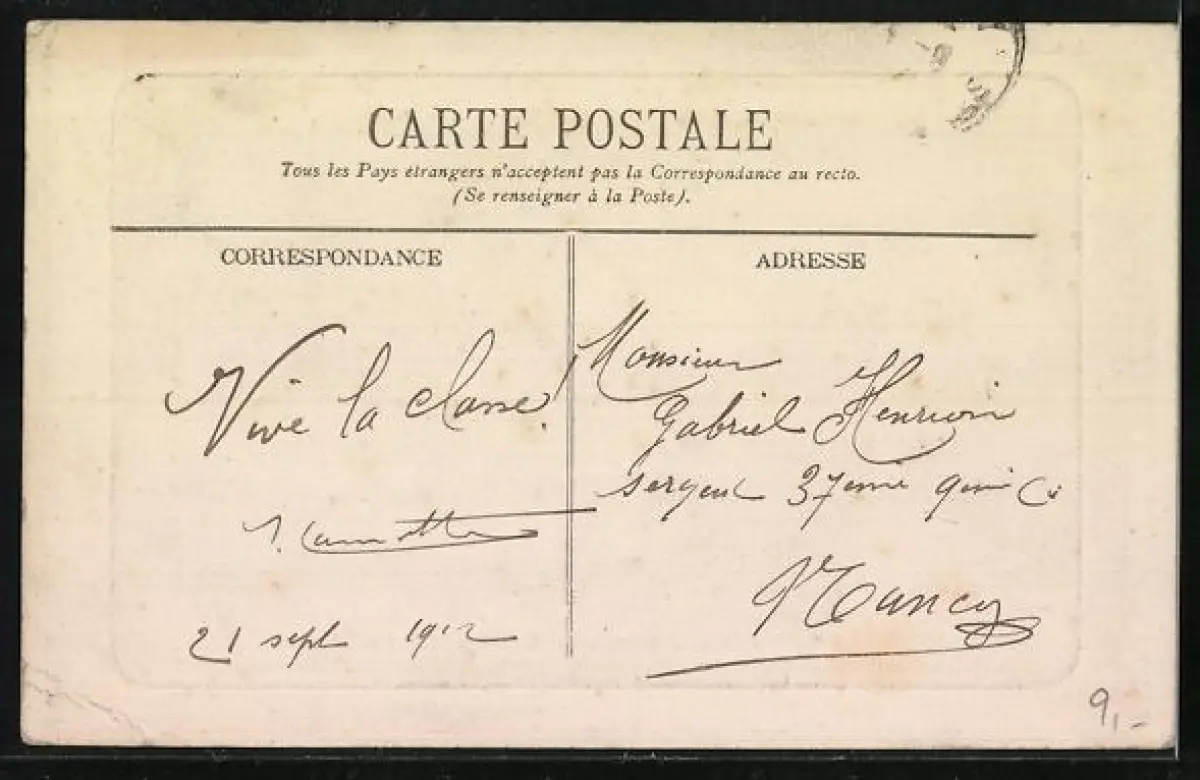 CARTE POSTALE
Tous les Pays étrangers n'acceptent pas la Correspondance au recto.
(Se renseigner à la Poste).
CORRESPONDANCE
Vive la classe!
21 sept 1912
ADRESSE
Monsieur
Gabriel
sergent 37eme Cie
Nancy
9,-